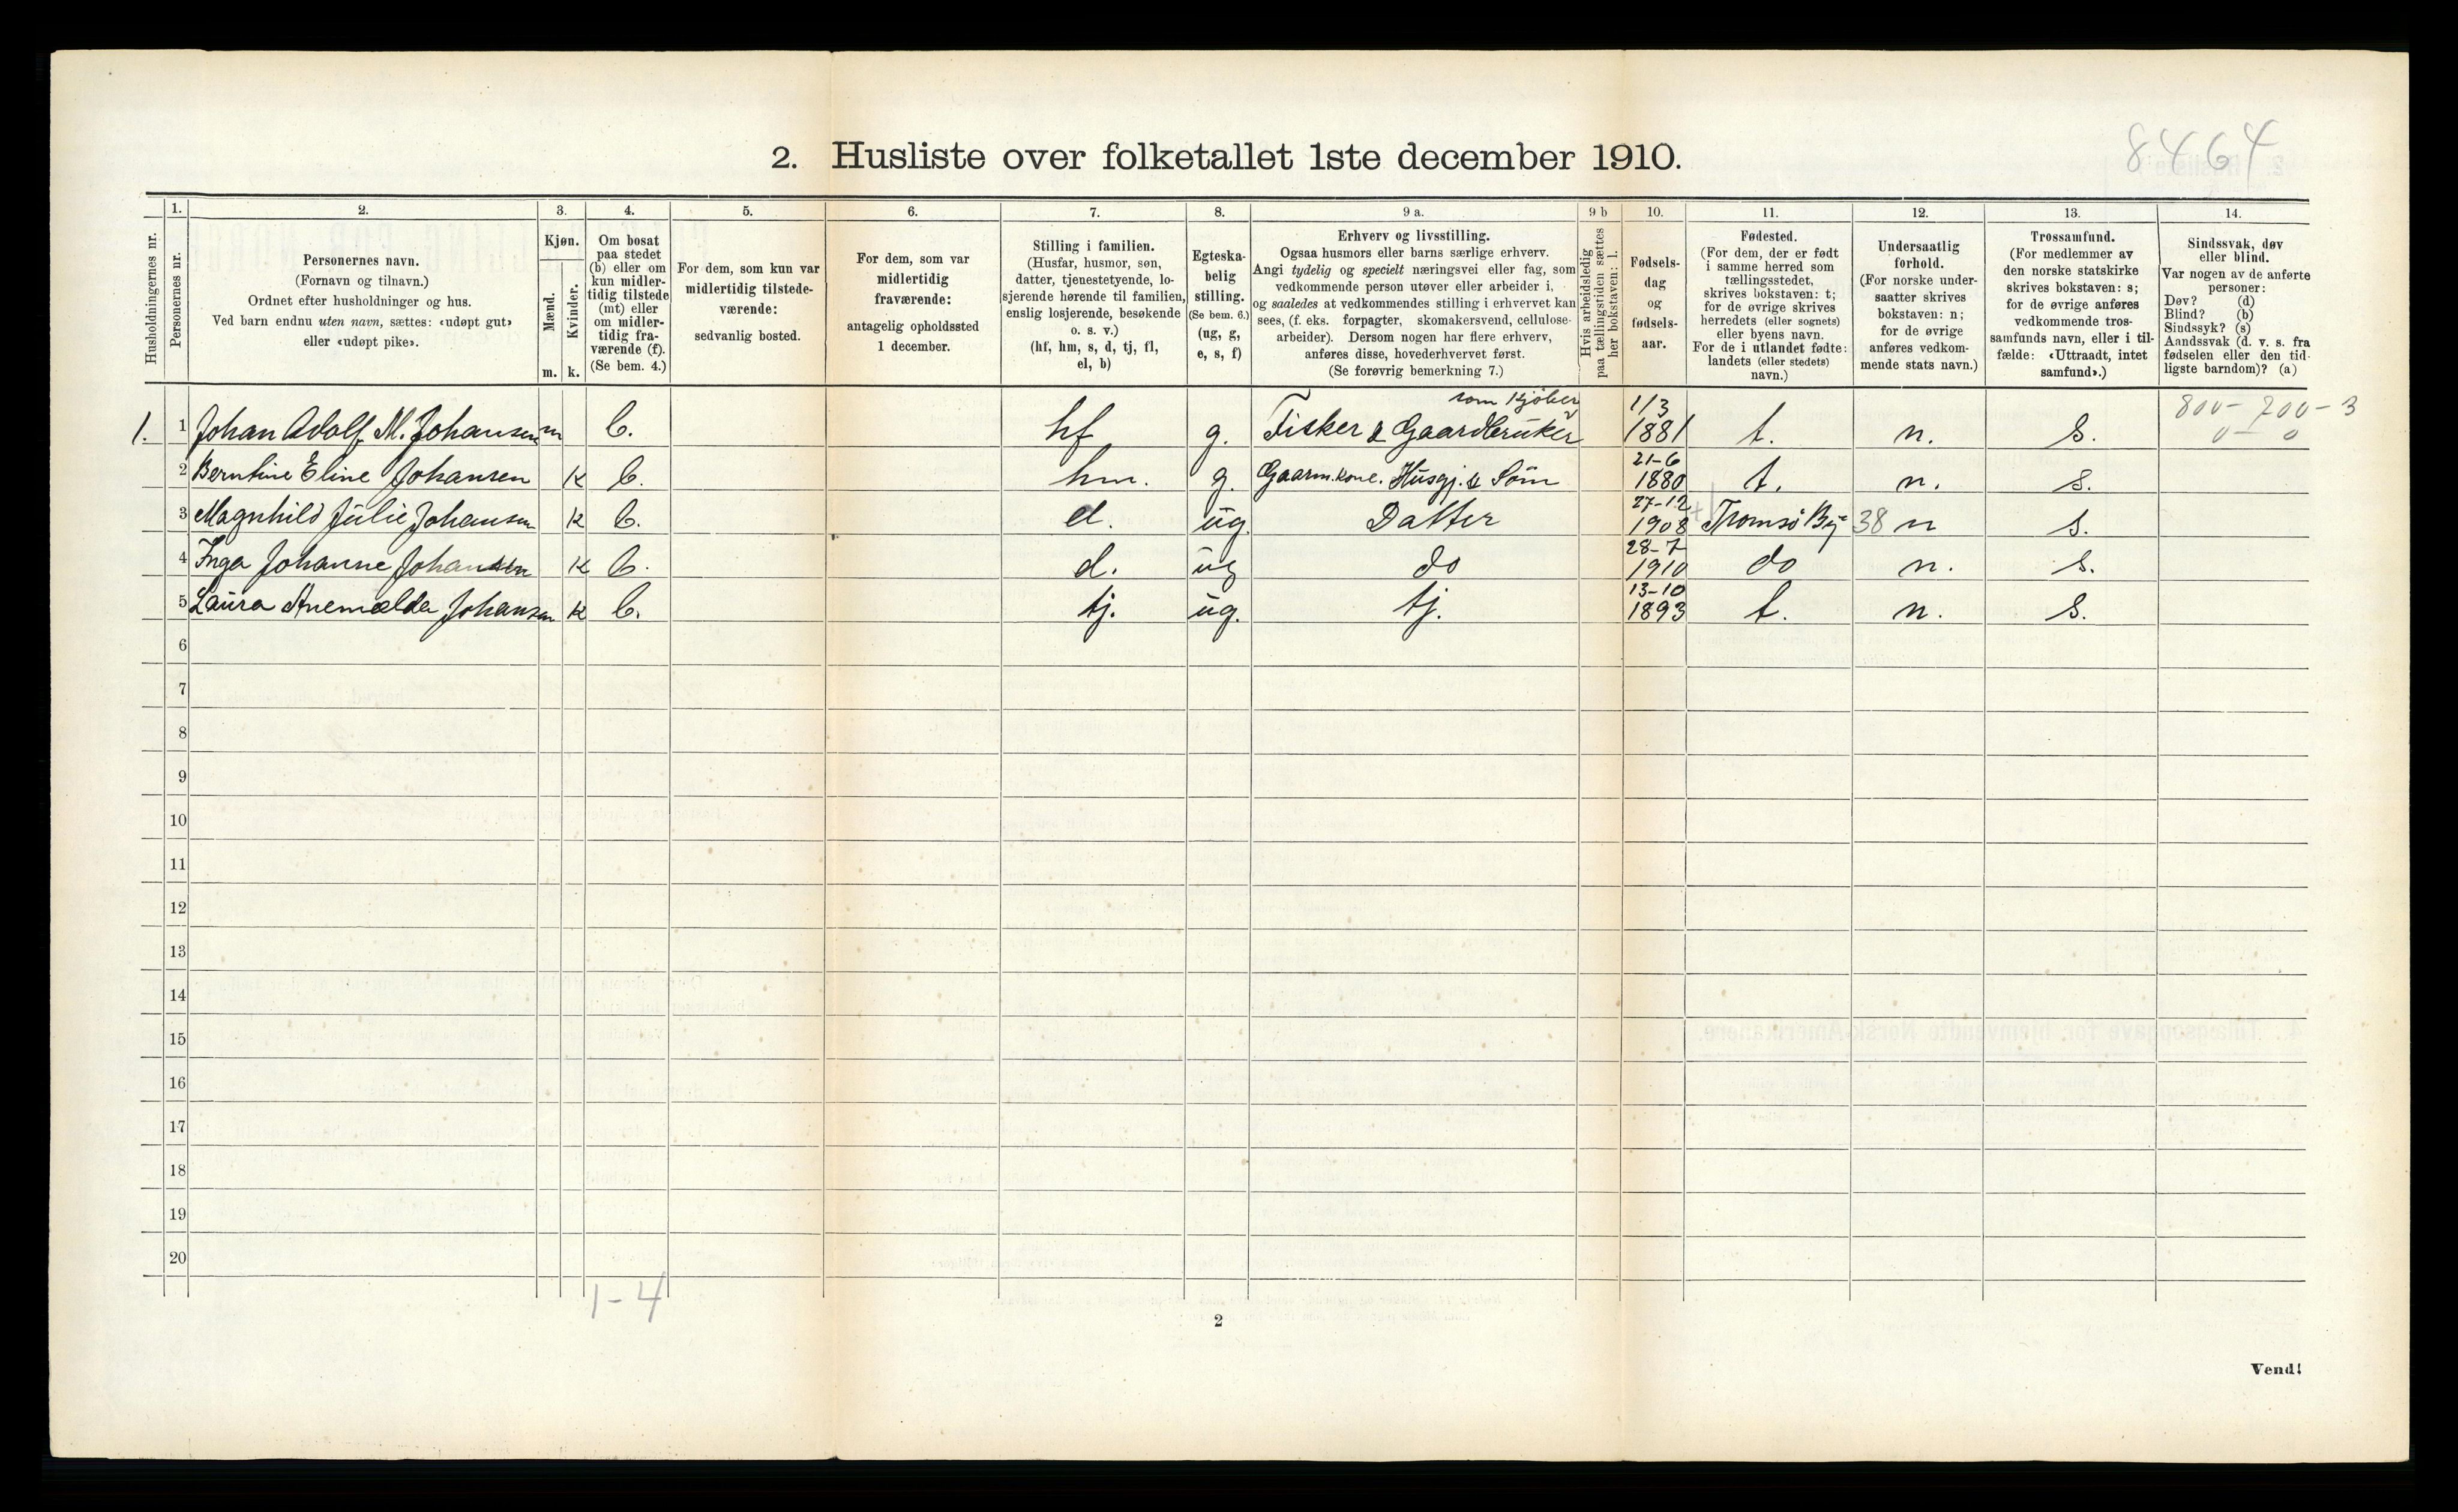 8464
2. Husliste over folketallet 1ste december 1910.
Husholdningernes nr.
1.
Personernes nr.
2.
Personernes navn.
(Fornavn og tilnavn.)
Ordnet efter husholdninger og hus.
Ved barn endnu uten navn, sættes: «udøpt gut»
eller «udøpt pike».
3.
Kjøn.
Mænd.
Kvinder.
m. k.
4.
Om bosat
paa stedet
(b) eller om
kun midler-
tidig tilstede
(mt) eller
om midler-
tidig fra-
værende (f).
(Se bem. 4.)
5.
For dem, som kun var
midlertidig tilstede-
værende:
sedvanlig bosted.
6.
For dem, som var
midlertidig
fraværende:
antagelig opholdssted
1 december.
7.
Stilling i familien.
(Husfar, husmor, søn,
datter, tjenestetyende, lo-
sjerende hørende til familien,
enslig losjerende, besøkende
o. s. v.)
(hf, hm, s, d, tj, fl,
el, b)
8.
Egteska-
belig
stilling.
(Se bem. 6.)
(ug, g,
e, s, f)
9 a.
Erhverv og livsstilling.
Ogsaa husmors eller barns særlige erhverv.
Angi tydelig og specielt næringsvei eller fag, som
vedkommende person utøver eller arbeider i,
og saaledes at vedkommendes stilling i erhvervet kan
sees, (f. eks. forpagter, skomakersvend, cellulose-
arbeider). Dersom nogen har flere erhverv,
anføres disse, hovederhvervet først.
(Se forøvrig bemerkning 7.)
9 b
Hvis arbeidsledig
paa tællingstiden sættes
her bokstaven: l.
10.
Fødsels-
dag
og
fødsels-
aar.
11.
Fødested.
(For dem, der er født
i samme herred som
tællingsstedet,
skrives bokstaven: t;
for de øvrige skrives
herredets (eller sognets)
eller byens navn.
For de i utlandet fødte:
landets (eller stedets)
navn.)
12.
Undersaatlig
forhold.
(For norske under-
saatter skrives
bokstaven: n;
for de øvrige
anføres vedkom-
mende stats navn.)
13.
Trossamfund.
(For medlemmer av
den norske statskirke
skrives bokstaven: s;
for de øvrige anføres
vedkommende tros-
samfunds navn, eller i til-
fælde: «Uttraadt, intet
samfund».)
14.
Sindssvak, døv
eller blind.
Var nogen av de anførte
personer:
Døv? (d)
Blind? (b)
Sindssyk? (s)
Aandssvak (d. v. s. fra
fødselen eller den tid-
ligste barndom)? (a)
som Kjøber 1/3 800 - 700 - 3
1. 1 Johan Adolf M. Johansen m b. hf g. Fisker & Gaardbruker 1881 t. n. s. 0 - 0
21-6
2 Berntine Eline Johansen k b. hm. g. Gaarm.kone. Husgj. & Søm 1880 t. n. s.
27-12
3 Magnhild Julie Johansen k b. d. ug. Datter 1908 Tromsø By 38 n s.
28-7
4 Inga Johanne Johansen k b. d. ug do 1910 do n. s.
13-10
5 Laura Johansen k b. tj. ug. tj. 1893 t. n. s.
6
7
8
9
10
11
12
13
14
15
16
17
18
19
20
1-4
2
Vend!